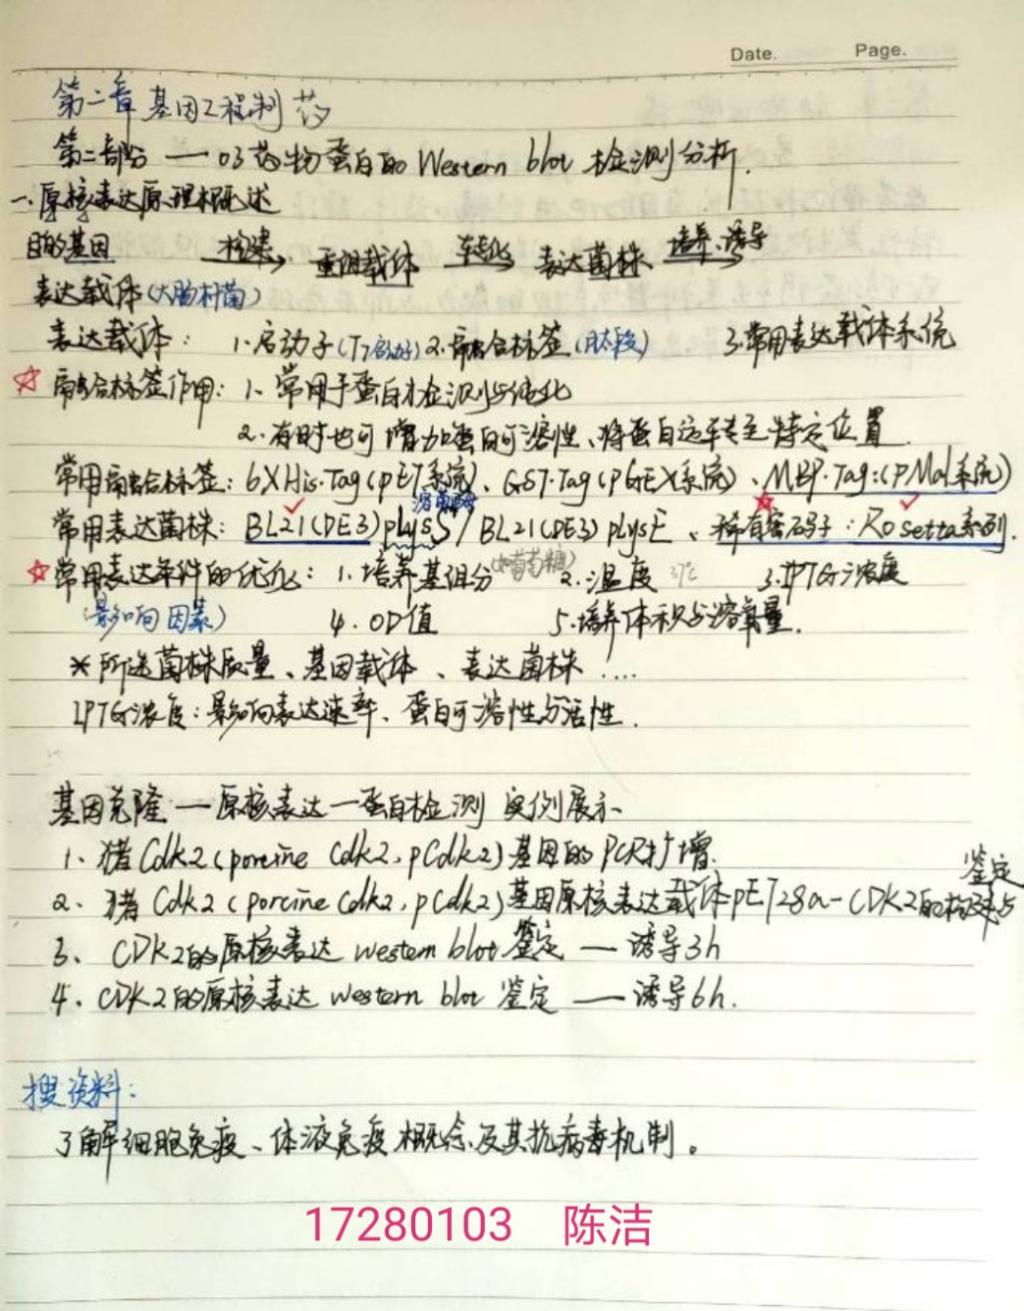 Date. Page.
第二章 基因工程制药
第二部分 — 03药物蛋白的Western blot 检测分析.
一.原核表达原理概述
目的基因 构建→ 重组载体 转化→ 表达菌株 培养、诱导→
表达载体(大肠杆菌)
表达载体: 1.启动子(T7启动子) 2.融合标签(肽段) 3.常用表达载体系统
☆融合标签作用: 1、常用于蛋白检测与纯化
2.有时也可增加蛋白可溶性、将蛋白运转至特定位置.
常用融合标签: 6XHis·Tag(pET系统)、GST·Tag(pGEX系统)、MBP·Tag:(PMal系统)
溶菌酶
常用表达菌株: BL21(DE3)plysS / BL21(DE3)plysE、稀有密码子: Rosetta系列.
☆常用表达条件的优化: 1.培养基组分(如葡萄糖) 2.温度 3.IPTG浓度
(影响因素) 4.OD值 5.培养体积与溶氧量.
*所选菌株质量、基因载体、表达菌株....
IPTG浓度:影响表达速率、蛋白可溶性与活性.
基因克隆—原核表达—蛋白检测 实例展示
1、猪Cdk2(porcine Cdk2, pCdk2)基因的PCR扩增.
2、猪Cdk2(porcine Cdk2, pCdk2)基因原核表达载体pET28a-CDK2的构建与鉴定
3、CDK2的原核表达 western blot 鉴定 — 诱导3h
4、CDK2的原核表达 western blot 鉴定 — 诱导6h.
搜资料:
了解细胞免疫、体液免疫概念及其抗病毒机制。
17280103 陈洁